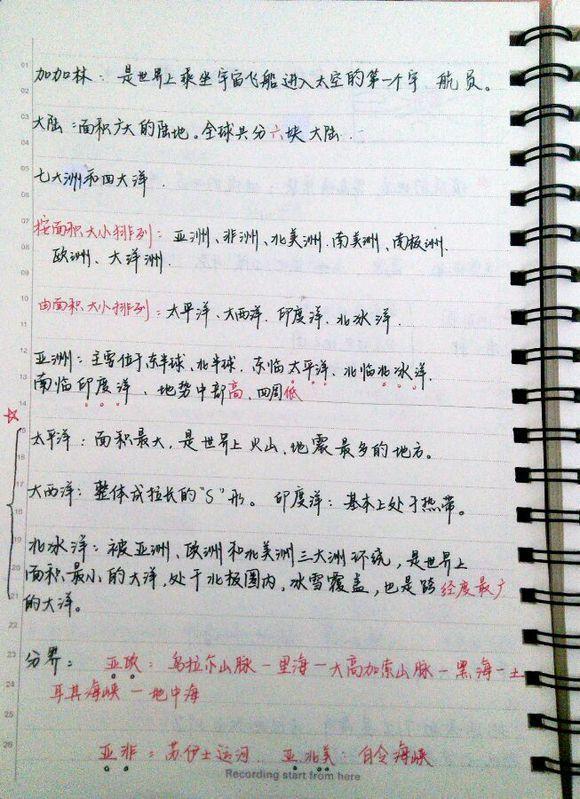 加加林：是世界上乘坐宇宙飞船进入太空的第一个宇 航员。
大陆：面积广大的陆地。全球共分六块大陆.
七大洲和四大洋.
按面积大小排列：亚洲、非洲、北美洲.南美洲、南极洲.
欧洲、大洋洲.
由面积大小排列：太平洋、大西洋.印度洋、北冰洋.
亚洲：主要位于东半球、北半球.东临太平洋、北临北冰洋.
南临印度洋、地势中部高、四周低
太平洋：面积最大，是世界上火山、地震最多的地方。
大西洋：整体成拉长的"S"形。印度洋：基本上处于热带。
北冰洋：被亚洲、欧洲和北美洲三大洲环绕，是世界上
面积最小的大洋，处于北极圈内，冰雪覆盖，也是跨经度最广
的大洋。
分界：亚欧：乌拉尔山脉-里海-大高加索山脉-黑海-土
耳其海峡-地中海
亚非：苏伊士运河 亚北美：白令海峡
Recording start from here